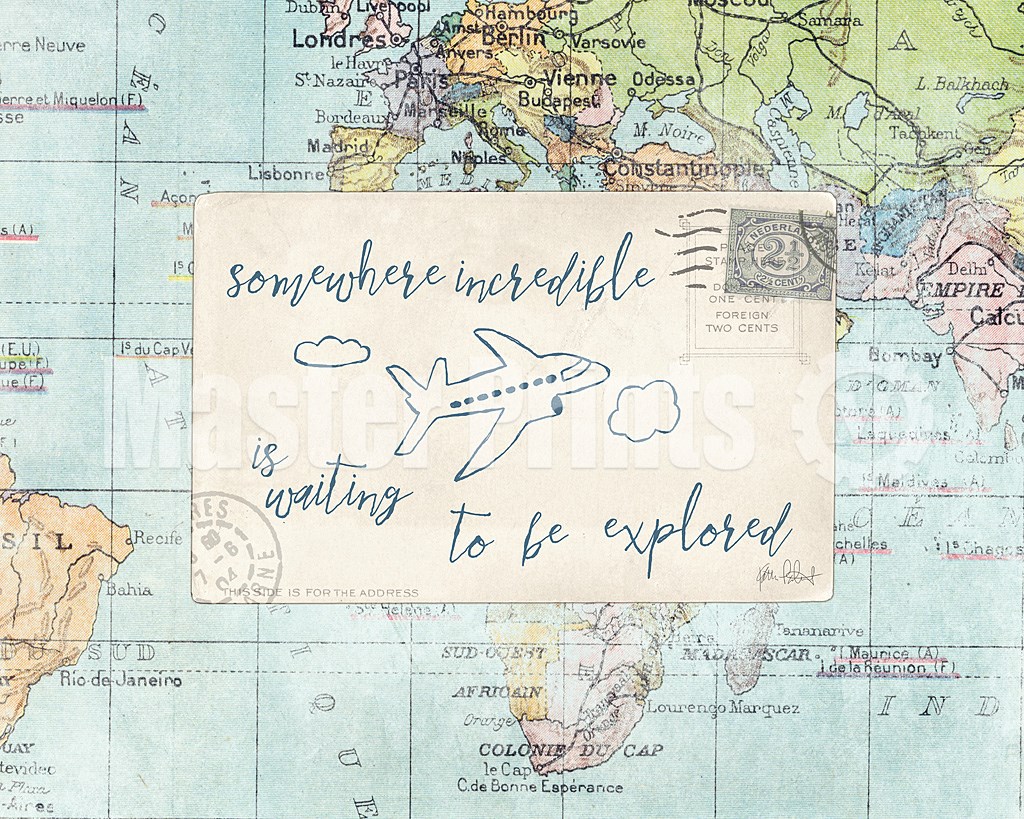 Dublin Liverpool
Moscou
Hambourg
Samara
Amst
Londres
Berlin
Varsovie
erre Neuve
Anvers
A
le Havre
Paris
Vienne
Odessa
St Nazaire
L. Balkhach
Budapest
ierre et Miquelon (F)
E
Bordeaux
Marseille
M. Noire
M. d'Aral
Rome
Tachkent
Madrid
Naples
Caspienne
Lisbonne
Constantinople
MEDI
Açon
s (A)
NEDERLAND
2½
2½ CENT
somewhere incredible
STAMP HERE
ONE CENT
FOREIGN
TWO CENTS
Kelat
Delhi
EMPIRE
Calcu
(E.U.)
Is du Cap Ve
upe (F)
ue (F)
Bombay
D'OMAN
Master Prints
Laquedives
Colombo
Is Maldives (A)
is
waiting
to be explored
OCEAN
chelles
(A)
Is Chagos
SIL
Recife
Bahia
THIS SIDE IS FOR THE ADDRESS
Ste Hélène (A)
Beira
Tananarive
DU SUD
SUD-OUEST
MADAGASCAR
I. Maurice (A)
I. de la Réunion (F)
Rio de Janeiro
AFRICAIN
Orange
Transvaal
Orange
Lourenço Marquez
IND
UAY
COLONIE DU CAP
tevideo
le Cap
C. de Bonne Espérance
a Plata
-Aires